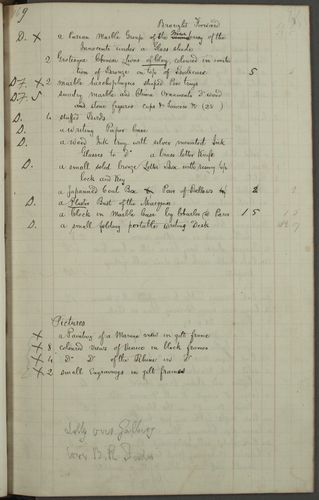 9
Brought Forward
D. X a Parian Marble Group of the Massacre of the
Innocents under a Glass shade
2 Grotesque Chinese Lions of Clay, coloured in imita
tion of Bronze on top of Bookcase 5
D.F. X 2 marble hieroglyphics shaped Pen trays
D.F. 5 sundry marble and China Ornaments &
and stone figures cups & (28)
D. 4 stuffed Birds
D. a Writing Paper Case
D. a wood Ink tray with silver mounted Ink
Glasses to Do a brass letter Knife
D. a small solid bronze Letter Box with
lock and Key
a Japanned Coal Box & Pair of Bellows 2
D. a Plaster Bust of the
a Clock in Marble case by Charles Paris 15
D. a small folding portable Writing Desk
Pictures
X a Painting of a Marine view in gilt frame
X 8 coloured views of Venice in black frames
X 4 Do Do of the Rhine in Do
X 2 small Engravings in gilt frames